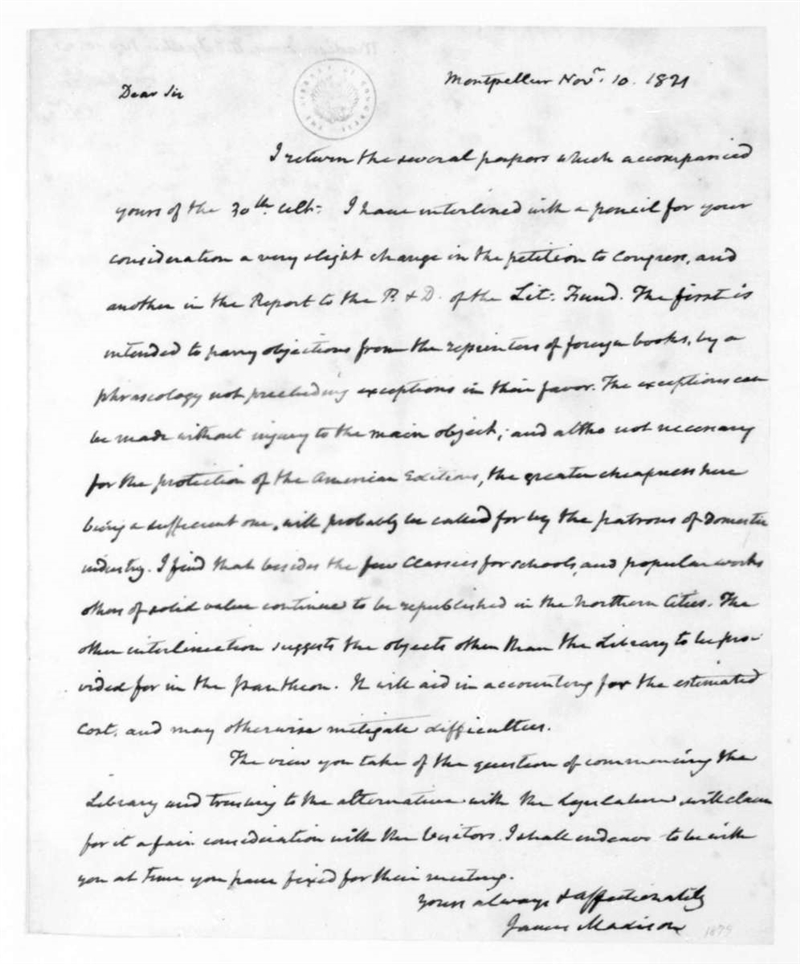 Montpellier Novr. 10. 1821
Dear Sir
I return the several papers which accompanied
yours of the 30th ult: I have interlined with a pencil for your
consideration a very slight change in the petition to Congress, and
another in the Report to the P. & D. of the Lit: Fund. The first is
intended to parry objections from the reprinters of foreign books, by a
phraseology not precluding exceptions in their favor. The exceptions can
be made without injury to the main object; and altho not necessary
for the protection of the American Editions, the greater cheapness here
being a sufficient one, will probably be called for by the patrons of Domestic
industry. I find that besides the few Classics for schools, and popular works
others of solid value continue to be republished in the Northern Cities. The
other interlineation suggests the objects other than the Library to be pro-
vided for in the Pantheon. It will aid in accounting for the estimated
Cost, and may otherwise mitigate difficulties.
The view you take of the question of commencing the
Library and trusting to the alternative with the Legislature will claim
for it a fair consideration with the Visitors. I shall endeavr to be with
you at time you have fixed for their meeting.
Yours always & affectionately
James Madison